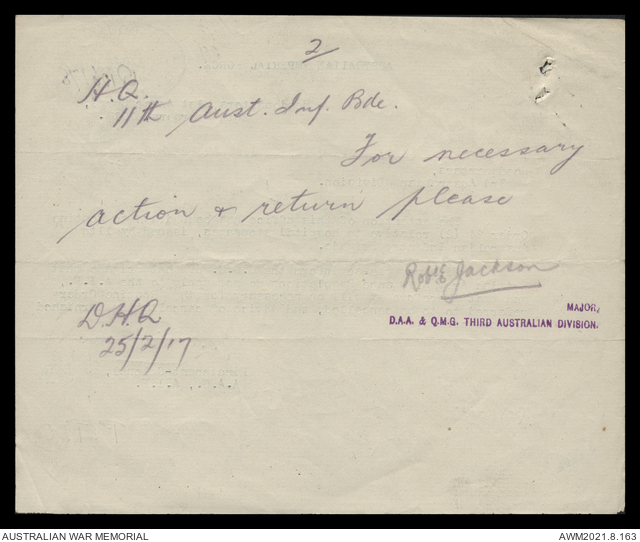 2
H.Q.
11th Aust. Inf. Bde.
For necessary
action & return please
Robt E Jackson
MAJOR,
D.A.A. & Q.M.G. THIRD AUSTRALIAN DIVISION.
D.H.Q
25/2/17
AUSTRALIAN WAR MEMORIAL
AWM2021.8.163